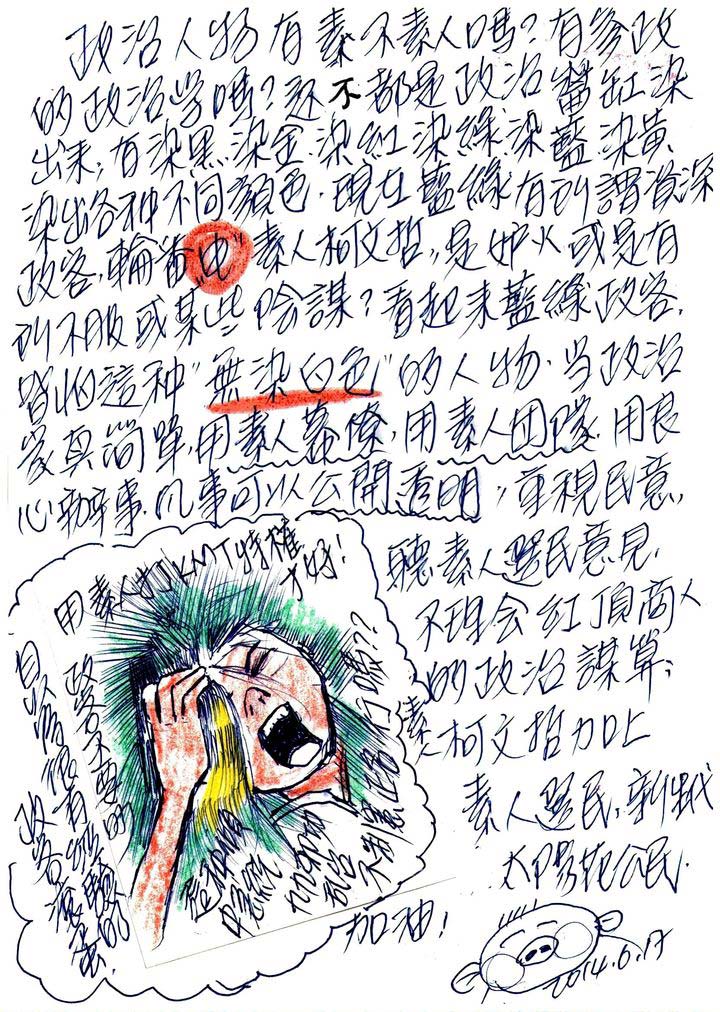 政治人物有素不素人嗎?有參政
的政治学嗎?还不都是政治醬缸染
出来;有染黑.染金.染紅.染綠.染藍.染黃.
染出各种不同顏色.現在藍綠有所謂資深
政客,輪番"虫"素人柯文哲,是妒火或是有
所不服或某些陰謀?看起来藍綠政客.
皆怕這种"無染白色"的人物.当政治
家真簡單,用素人幕僚,用素人团隊.用良
心辦事.凡事可以公開透明;重視民意,
聽素人選民意見.
不理会紅頂商人
的政治謀算;
素人柯文哲加上
素人選民,新世代
太陽花公民.
加油!
用素人打KMT特權
才好!
政客不要臉的
自以為很有經驗的
政客滾蛋!
2014.6.17